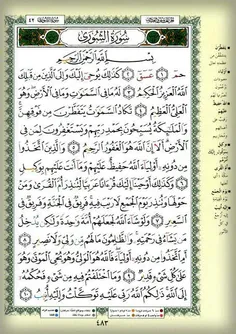 سُورَةُ الشُّورَىٰ
بِسْمِ اللَّهِ الرَّحْمَٰنِ الرَّحِيمِ
حمٓ ١ عٓسٓقٓ ٢ كَذَٰلِكَ يُوحِىٓ إِلَيْكَ وَإِلَى ٱلَّذِينَ مِن قَبْلِكَ
ٱللَّهُ ٱلْعَزِيزُ ٱلْحَكِيمُ ٣ لَهُۥ مَا فِى ٱلسَّمَٰوَٰتِ وَمَا فِى ٱلْأَرْضِ وَهُوَ
ٱلْعَلِىُّ ٱلْعَظِيمُ ٤ تَكَادُ ٱلسَّمَٰوَٰتُ يَتَفَطَّرْنَ مِن فَوْقِهِنَّ
وَٱلْمَلَٰٓئِكَةُ يُسَبِّحُونَ بِحَمْدِ رَبِّهِمْ وَيَسْتَغْفِرُونَ لِمَن فِى
ٱلْأَرْضِ أَلَآ إِنَّ ٱللَّهَ هُوَ ٱلْغَفُورُ ٱلرَّحِيمُ ٥ وَٱلَّذِينَ ٱتَّخَذُوا۟
مِن دُونِهِۦٓ أَوْلِيَآءَ ٱللَّهُ حَفِيظٌ عَلَيْهِمْ وَمَآ أَنتَ عَلَيْهِم بِوَكِيلٍ
٦ وَكَذَٰلِكَ أَوْحَيْنَآ إِلَيْكَ قُرْءَانًا عَرَبِيًّا لِّتُنذِرَ أُمَّ ٱلْقُرَىٰ وَمَنْ
حَوْلَهَا وَتُنذِرَ يَوْمَ ٱلْجَمْعِ لَا رَيْبَ فِيهِ فَرِيقٌ فِى ٱلْجَنَّةِ وَفَرِيقٌ فِى
ٱلسَّعِيرِ ٧ وَلَوْ شَآءَ ٱللَّهُ لَجَعَلَهُمْ أُمَّةً وَٰحِدَةً وَلَٰكِن يُدْخِلُ
مَن يَشَآءُ فِى رَحْمَتِهِۦ وَٱلظَّٰلِمُونَ مَا لَهُم مِّن وَلِىٍّ وَلَا نَصِيرٍ
٨ أَمِ ٱتَّخَذُوا۟ مِن دُونِهِۦٓ أَوْلِيَآءَ فَٱللَّهُ هُوَ ٱلْوَلِىُّ وَهُوَ يُحْىِ ٱلْمَوْتَىٰ وَهُوَ
عَلَىٰ كُلِّ شَىْءٍ قَدِيرٌ ٩ وَمَا ٱخْتَلَفْتُمْ فِيهِ مِن شَىْءٍ فَحُكْمُهُۥٓ
إِلَى ٱللَّهِ ذَٰلِكُمُ ٱللَّهُ رَبِّى عَلَيْهِ تَوَكَّلْتُ وَإِلَيْهِ أُنِيبُ ١٠
٤٨٣